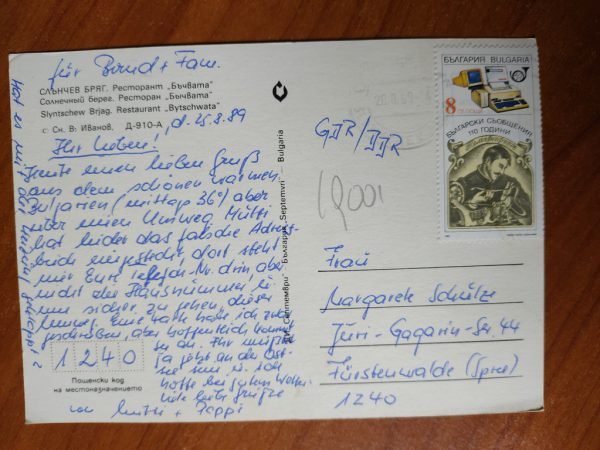 für Bernd + Fam.
СЛЪНЧЕВ БРЯГ. Ресторант „Бъчвата"
Солнечный берег. Ресторан „Бычвата"
Slyntschew Brjag. Restaurant „Bytschwata"
с Сн. В: Иванов. Д-910-А
d. 25.8.89
Ihr Lieben!
Heute einen lieben Gruß
aus dem schönen warmen
Bulgarien (mittags 36°) aber
über einen Umweg Mutti
hat leider das falsche Adreß-
buch eingesteckt, dort steht
nur Eure Telefon-Nr. drin aber
nicht die Hausnummer
um sicher zu gehen, dieser
geschrieben, aber hoffentlich kommt
sie an. Ihr
ja jetzt an der Ost-
see sein, u. ich
hoffe bei gutem Wetter
viele liebe Grüße
Mutti + Pappi
Hat es mit der
1240
Пощенски код
на местоназначението
ДИ „Септември" – България „Septemvri" – Bulgaria
GDR/DDR
Frau
Margarete Schütze
Juri-Gagarin-Str. 44
Fürstenwalde (Spree)
1240
БЪЛГАРИЯ BULGARIA
8
БЪЛГАРСКИ СЪОБЩЕНИЯ
110 ГОДИНИ